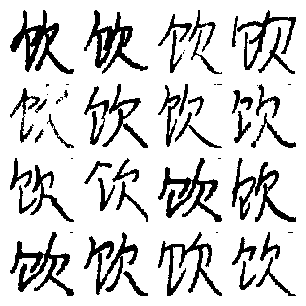 饮饮饮饮
饮饮饮饮
饮饮饮饮
饮饮饮饮